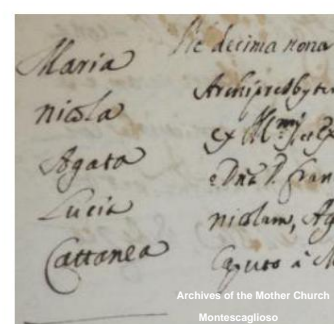 Maria
Nicola
Agata
Lucia
Cattanea
Die decima nona
Archipresbyte
ex
D. Fran
nicolam, Ag
Caputo à
Archives of the Mother Church
Montescaglioso